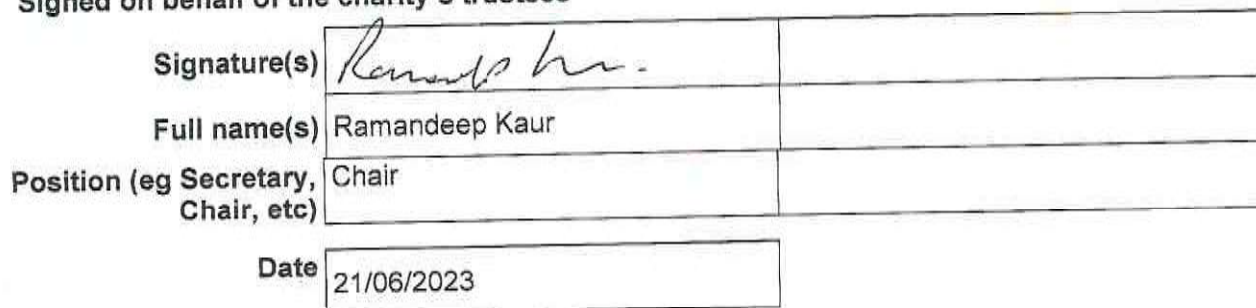 Signed on behalf of the charity's trustees
Signature(s)
Full name(s) Ramandeep Kaur
Position (eg Secretary, Chair
Chair, etc)
Date 21/06/2023